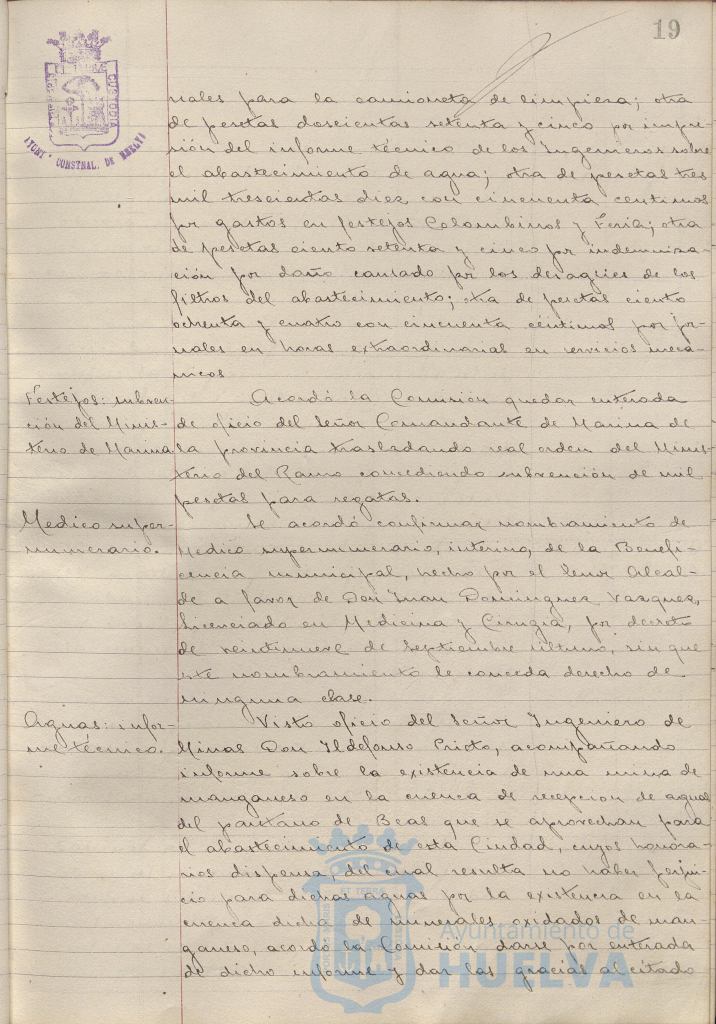 19
CUSTODIA
AYUNT° CONSTNAL. DE HUELVA
nales para la camioneta de limpieza; otra
de pesetas doscientas setenta y cinco por impre-
sión del informe técnico de los Ingenieros sobre
el abastecimiento de agua; otra de pesetas tres
mil trescientas diez con cincuenta centimos
por gastos en festejos Colombinos y Feria; otra
de pesetas ciento setenta y cinco por indemniza-
ción por daño causado por los desagües de los
filtros del abastecimiento; otra de pesetas ciento
ochenta y cuatro con cincuenta céntimos por jor-
nales en horas extraordinarias en servicios mecá-
nicos
Festejos: subven-
ción del Minis-
terio de Marina
Acordó la Comisión quedar enterada
de oficio del Señor Comandante de Marina de
la provincia trasladando real orden del Minis-
terio del Ramo concediendo subvención de mil
pesetas para regatas.
Medico super-
numerario.
Se acordó confirmar nombramiento de
Medico supernumerario, interino, de la Benefi-
cencia municipal, hecho por el Señor Alcal-
de a favor de Don Juan Dominguez Vazquez,
Licenciado en Medicina y Cirugia, por decreto
de veintinueve de Septiembre último, sin que
este nombramiento le conceda derecho de
ninguna clase.
Aguas: infor-
me técnico.
Visto oficio del Señor Ingeniero de
Minas Don Ildefonso Prieto, acompañando
informe sobre la existencia de una mina de
manganeso en la cuenca de recepcion de aguas
del pantano de Beas que se aprovechan para
el abastecimiento de esta Ciudad, cuyos honora-
rios dispensa, del cual resulta no haber perjui-
cio para dichas aguas por la existencia en la
cuenca dicha de minerales oxidados de man-
ganeso, acordó la Comisión darse por enterada
de dicho informe y dar las gracias al citado
ET TERRÆ
Ayuntamiento de
HUELVA